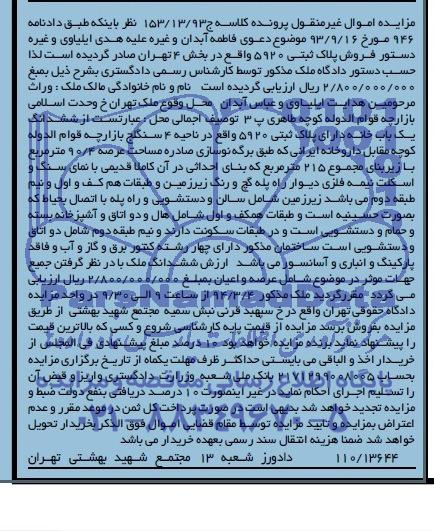 مزایده اموال غیرمنقول پرونده کلاسه ج۱۵۳/۱۳/۹۳ نظر باینکه طبق دادنامه
۹۴۶ مورخ ۹۳/۹/۱۶ موضوع دعوی فاطمه آبدان و غیره علیه هدی ایلیاوی و غیره
دستور فروش پلاک ثبتی ۵۹۲۰ واقع در بخش ۴ تهران صادر گردیده است لذا
حسب دستور دادگاه ملک مذکور توسط کارشناس رسمی دادگستری بشرح ذیل بمبغ
۲/۸۰۰/۰۰۰/۰۰۰ ریال ارزیابی گردیده است نام و نام خانوادگی مالک ملک : وراث
مرحومین هدایت ایلیاوی و عباس آبدان محل وقوع ملک تهران خ وحدت اسلامی
بازارچه قوام الدوله کوچه طاهری پ ۳ توصیف اجمالی محل : عبارتست از ششدانگ
یک باب خانه دارای پلاک ثبتی ۵۹۲۰ واقع در ناحیه ۴ سنگلج بازارچه قوام الدوله
کوچه مقابل داروخانه ایرانی که طبق برگه نوسازی صادره مساحت عرصه ۹۰/۴ مترمربع
با زیربنای مجموع ۲۱۵ مترمربع که بنای احداثی در آن کاملا قدیمی با نمای سنگ و
اسکلت نیمه فلزی دیوار راه پله گچ و رنگ زیرزمین و طبقات هم کف و اول و نیم
طبقه دوم می باشد زیرزمین شامل سالن و دستشویی و راه پله با اتصال بحیاط که
بصورت حسینیه است و طبقات همکف و اول شامل هال و دو اتاق و آشپزخانه بسته
و حمام و دستشویی است و در طبقات سکونت دارند و نیم طبقه دوم شامل دو اتاق
و دستشویی است ساختمان مذکور دارای چهار رشته کنتور برق و گاز و آب و فاقد
پارکینگ و انباری و آسانسور می باشد ارزش ششدانگ ملک با در نظر گرفتن جمیع
جهات موثر در موضوع شامل عرصه و اعیان بمبلغ ۲/۸۰۰/۰۰۰/۰۰۰ ریال ارزیابی
می گردد مقرر گردید ملک مذکور ۹۴/۳/۴ از ساعت ۹ الی ۹/۳۰ در واحد مزایده
دادگاه حقوقی تهران واقع در خ سپهبد قرنی نبش سمیه مجتمع شهید بهشتی از طریق
مزایده بفروش برسد مزایده از قیمت پایه کارشناسی شروع و کسی که بالاترین قیمت
را پیشنهاد نماید برنده مزایده خواهد بود ۱۰ درصد مبلغ پیشنهادی فی المجلس از
خریدار اخذ و الباقی می بایستی حداکثر ظرف مهلت یکماه از تاریخ برگزاری مزایده
بحساب ۲۱۷۱۲۹۹۰۰۸۰۰۵ بانک ملی شعبه وزارت دادگستری واریز و قبض آن
را تسلیم اجرای احکام نماید در غیر اینصورت ۱۰ درصد دریافتی بنفع دولت ضبط و
مزایده تجدید خواهد شد بدیهی است در صورت پرداخت کل ثمن در موعد مقرر و عدم
اعتراض بمزایده و تایید مزایده توسط مقام قضایی اموال فوق الذکر بخریدار تحویل
خواهد شد ضمنا هزینه انتقال سند رسمی بعهده خریدار می باشد
۱۱۰/۱۳۶۴۴ دادورز شعبه ۱۳ مجتمع شهید بهشتی تهران